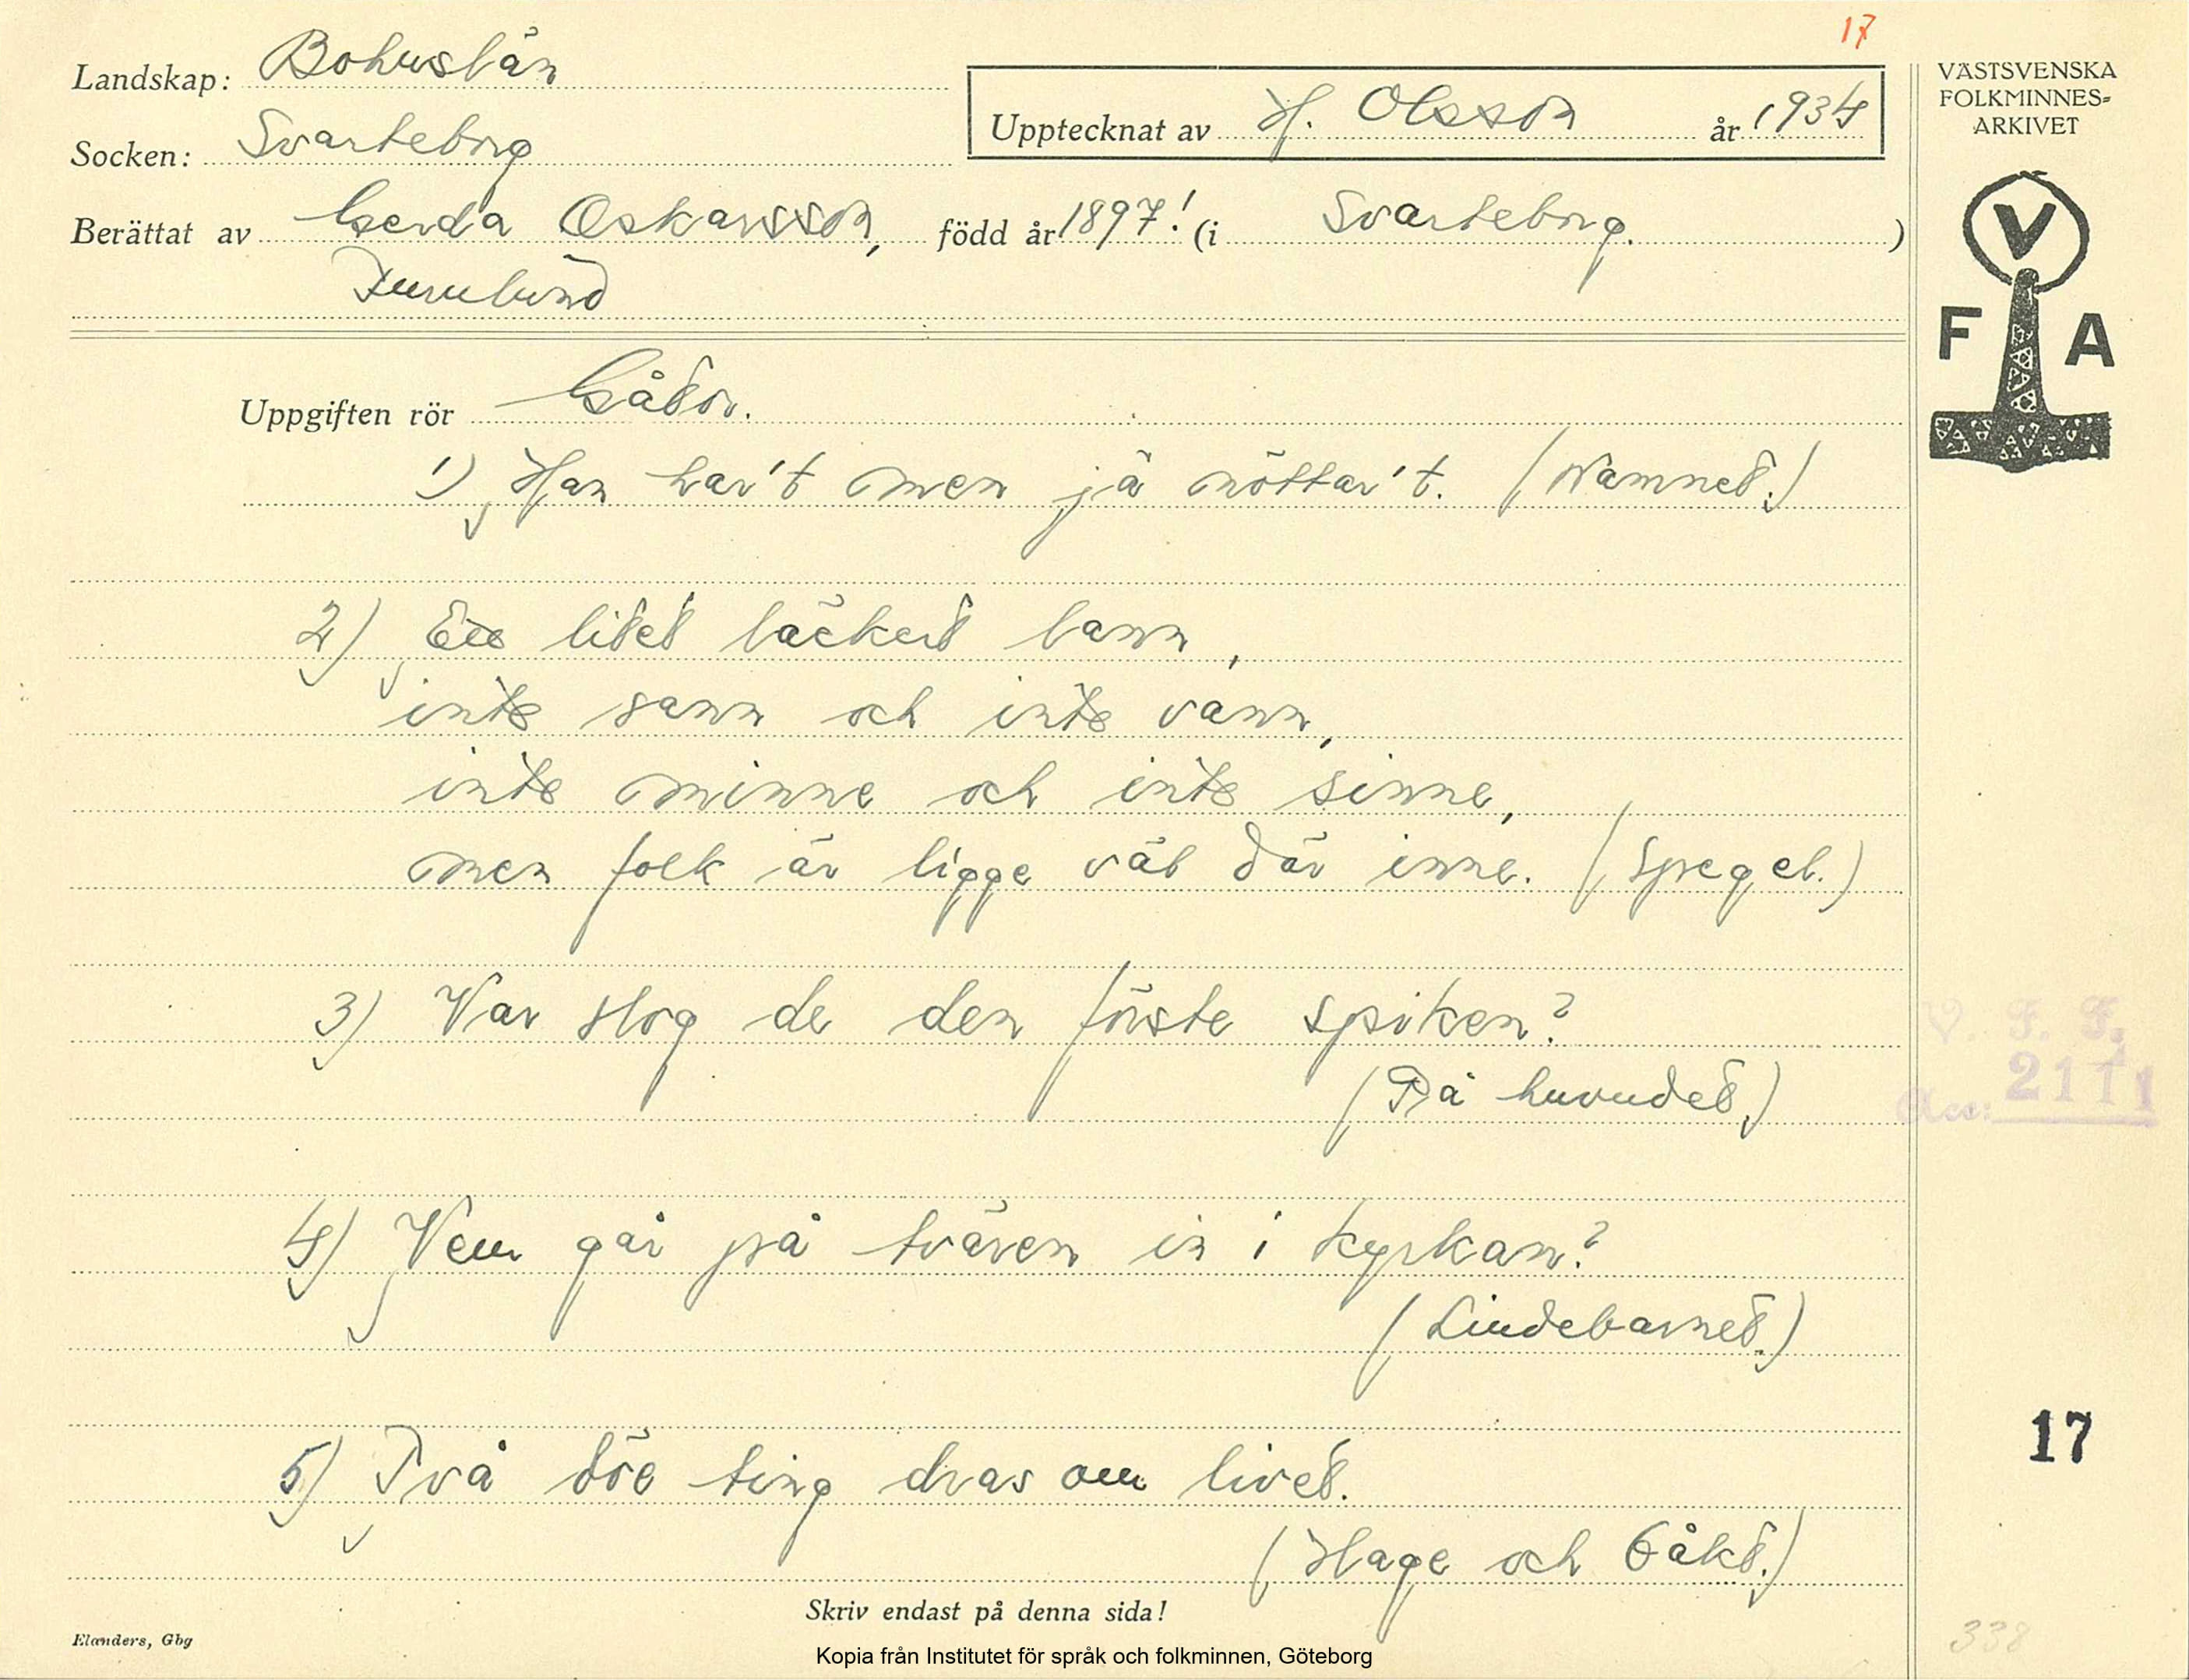 17
Landskap: Bohuslän
Socken: Svarteborg
Upptecknat av H. Olsson år 1934
Berättat av Gerda Oskarsson, född år 1897! (i Svarteborg.)
Furulund
VÄSTSVENSKA
FOLKMINNES-
ARKIVET
V
F A
Uppgiften rör Gåtor.
1) Han har't men jä nöttar't. (Namnet.)
2) Ett litet läckert lann,
inte sann och inte vann,
inte minne och inte sinne,
men folk är ligge väl där inne. (Spegel.)
3) Var slog de den förste spiken?
(På huvudet.)
V. F. F.
Acc: 2111
4) Vem går på tvären in i kyrkan?
(Lindebarnet.)
5) Två döe ting dras om livet.
17
(Hage och båkt.)
Skriv endast på denna sida!
Elanders, Gbg
338
Kopia från Institutet för språk och folkminnen, Göteborg